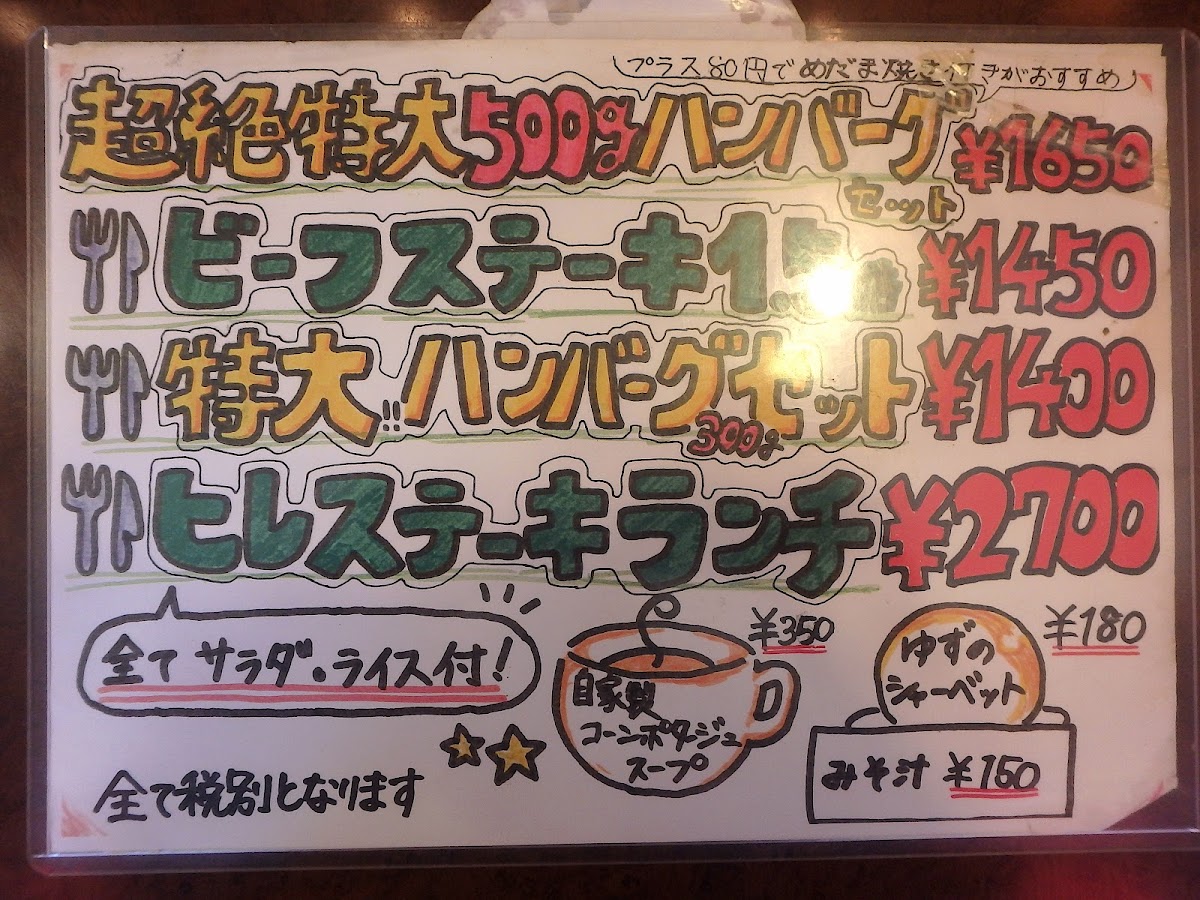 プラス80円でめだま焼き付きがおすすめ
超絶特大500gハンバーグ
セット ¥1650
ビーフステーキ1.5倍 ¥1450
特大!!ハンバーグセット ¥1400
300g
ヒレステーキランチ ¥2700
全てサラダ・ライス付!
自家製
コーンポタージュ
スープ
¥350
ゆずの
シャーベット
¥180
みそ汁 ¥150
全て税別となります